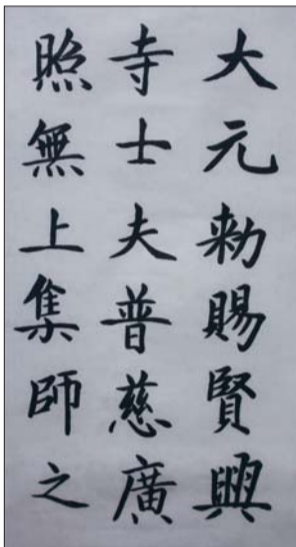 大元勅賜賢興
寺士夫普慈廣
照無上集師之